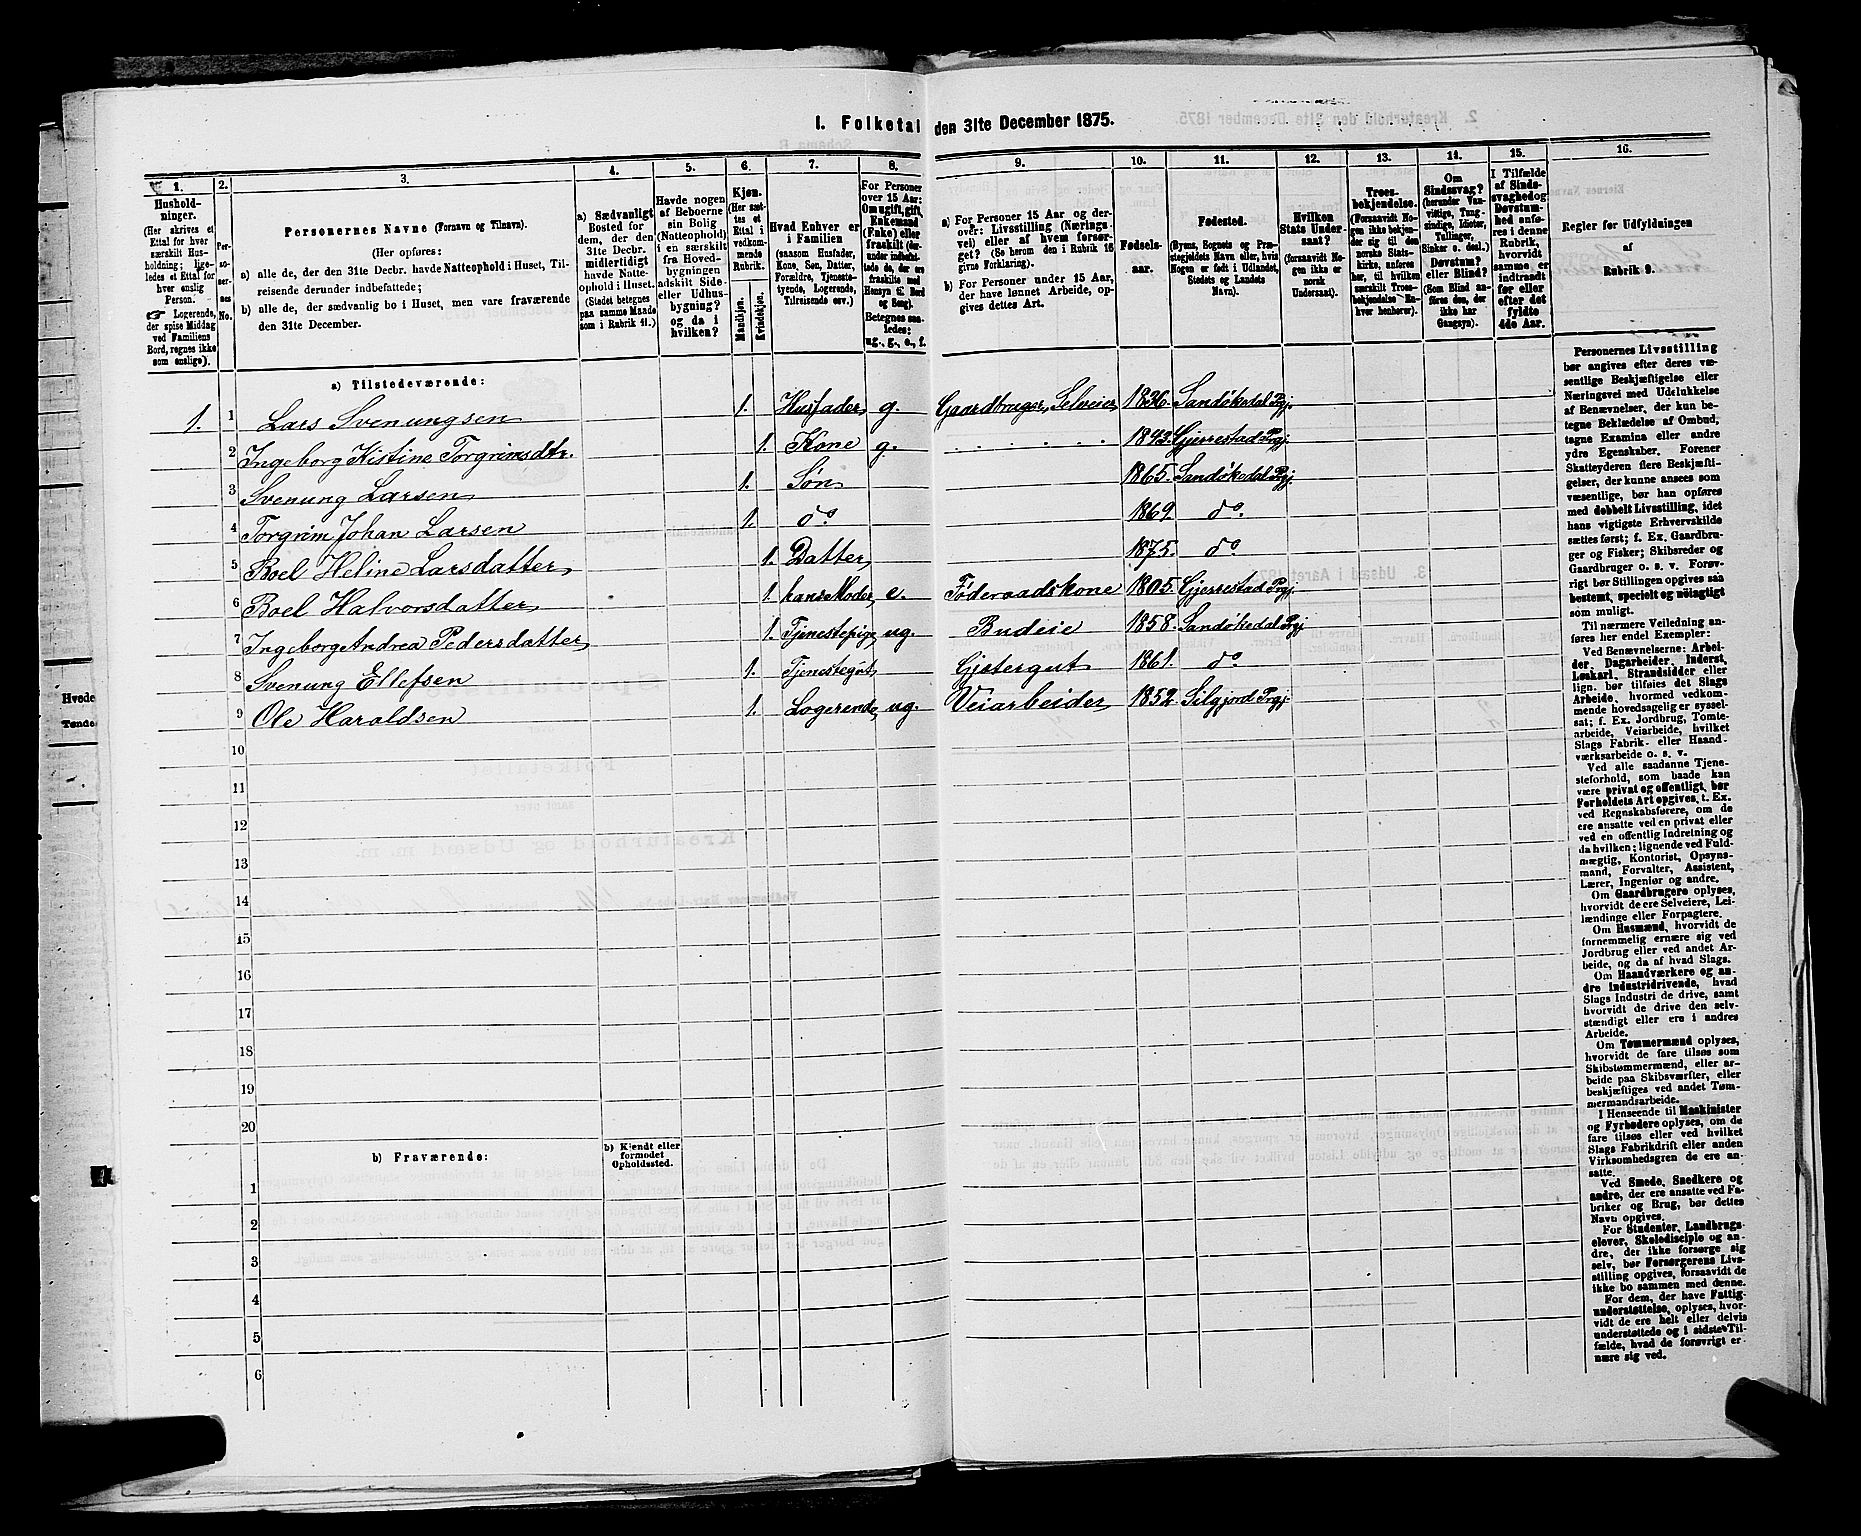 I. Folketal den 31te December 1875.
1. 2. 3. 4. 5. 6. 7. 8. 9. 10. 11. 12. 13. 14. 15. 16.
Hushold-
ninger.
(Her skrives et
Ettal for hver
særskilt Hus-
holdning; lige-
ledes et Ettal for
hver enslig
Person.
☞ Logerende,
der spise Middag
ved Familiens
Bord, regnes ikke
som enslige).
Personernes Navne (Fornavn og Tilnavn).
(Her opføres:
a) alle de, der den 31te Decbr. havde Natteophold i Huset, Til-
reisende derunder indbefattede;
b) alle de, der sædvanlig bo i Huset, men vare fraværende
den 31te December.
a) Sædvanligt
Bosted for
dem, der den
31te Decbr.
midlertidigt
havde Natte-
ophold i Huset.
(Stedet betegnes
paa samme Maade
som i Rubrik 11.)
Havde nogen
af Beboerne
sin Bolig
(Natteophold)
i en særskilt
fra Hoved-
bygningen
adskilt Side-
eller Udhus-
bygning?
og da i
hvilken?
Kjøn.
(Her sæt-
tes et
Ettal i
vedkom-
mende
Rubrik.
Mandkjøn.
Kvindekjøn.
Hvad Enhver er
i Familien
(saasom Husfader,
Kone, Søn, Datter,
Forældre, Tjeneste-
tyende, Logerende,
Tilreisende osv.)
For Personer
over 15 Aar:
Om ugift, gift,
Enkemand
(Enke) eller
fraskilt
Betegnes saa-
ledes:
ug., g., e., f.
a) For Personer 15 Aar og der-
over: Livsstilling (Nærings-
vei) eller af hvem forsør-
get? (Se herom den i Rubrik 16
givne Forklaring).
b) For Personer under 15 Aar,
der have lønnet Arbeide, op-
gives dettes Art.
Fødsels-
aar.
Fødested.
(Byens, Sognets og Præ-
stegjeldets Navn, eller, hvis
Nogen er født i Udlandet,
Stedets og Landets
Navn).
Hvilken
Stats Under-
saat?
(forsaavidt No-
gen ikke er
norsk
Undersaat).
Troes-
bekjendelse.
(Forsaavidt No-
gen ikke bekjen-
der sig til den
norske Stats-
kirke, anføres
her, til hvilken
særskilt Troes-
bekjendelse En-
hver henhører).
Om
Sindssvag?
(herunder Van-
vittige, Tung-
sindige, Idioter,
Tullinger,
Sinker o. desl.)
Døvstum?
eller Blind?
(Som Blind an-
føres den, der
ikke har
Gangsyn).
I Tilfælde
af Sinds-
svaghed og
Døvstum-
hed anfø-
res i denne
Rubrik,
hvorvidt
samme er
indtraadt
før eller
efter det
fyldte
4de Aar.
Regler for Udfyldningen
af
Rubrik 9.
a) Tilstedeværende:
1. 1 Lars Svenungsen 1. Husfader g. Gaardbruger, Selveier 1836. Sandøkedal Prgj.
2 Ingeborg Kistine Torgrimsdtr. 1. Kone g. 1843. Gjerrestad Prgj.
3 Svenung Larsen 1. Søn 1865. Sandøkedal Prgj.
4 Torgrim Johan Larsen 1. do. 1869. do.
5 Boel Heline Larsdatter 1. Datter 1875. do
6 Boel Halvorsdatter 1. hans Moder e. Føderaadskone 1805. Gjerrestad Prgj.
7 Ingeborg Andrea Pedersdatter 1. Tjenestepige ug. Budeie 1858. Sandøkedal Prgj
8 Svenung Ellefsen 1. Tjenestegut Gjetergut 1861. do.
9 Ole Haraldsen 1. Logerende ug. Veiarbeider 1852. Silgjord Prgj.
10
11
12
13
14
15
16
17
18
19
20
b) Fraværende:
b) Kjendt eller
formodet
Opholdssted.
1
2
3
4
5
6
Personernes Livsstilling
bør angives efter deres væ-
sentlige Beskjæftigelse eller
Næringsvei med Udelukkelse
af Benævnelser, der kun be-
tegne Beklædelse af Ombud,
tagne Examina eller andre
ydre Egenskaber. Forener
Skatteyderen flere Beskjæfti-
gelser, der kunne ansees som
væsentlige, bør han opføres
med dobbelt Livsstilling, idet
hans vigtigste Erhvervskilde
sættes først; f. Ex. Gaardbru-
ger og Fisker; Skibsreder og
Gaardbruger o. s. v. Forøv-
rigt bør Stillingen opgives saa
bestemt, specielt og nøiagtigt
som muligt.
Til nærmere Veiledning an-
føres her endel Exempler:
Ved Benævnelserne: Arbei-
der, Dagarbeider, Inderst,
Løskarl, Strandsidder eller
lign. bør tilføies det Slags
Arbeide, hvormed vedkom-
mende hovedsagelig er syssel-
sat; f. Ex. Jordbrug, Tomte-
arbeide, Veiarbeide, hvilket
Slags Fabrik- eller Haand-
værksarbeide o. s. v.
Ved alle saadanne Tjene-
steforhold, som baade kan
være privat og offentligt, bør
Forholdets Art opgives, t. Ex.
ved Regnskabsførere, om de
ere ansatte ved en privat eller
ved en offentlig Indretning og
da hvilken; lignende ved Fuld-
mægtig, Kontorist, Opsyns-
mand, Forvalter, Assistent,
Lærer, Ingeniør og andre.
Om Gaardbrugere oplyses,
hvorvidt de ere Selveiere, Lei-
lændinge eller Forpagtere.
Om Husmænd, hvorvidt de
fornemmelig ernære sig ved
Jordbrug eller ved andet Ar-
beide, og da af hvad Slags.
Om Haandværkere og an-
dre Industridrivende, hvad
Slags Industri de drive, samt
hvorvidt de drive den selv-
stændigt eller ere i andres
Arbeide.
Om Tømmermænd oplyses,
hvorvidt de fare tilsøs som
Skibstømmermænd, eller ar-
beide paa Skibsværfter, eller
beskjæftiges ved andet Tøm-
mermandsarbeide.
I Henseende til Maskinister
og Fyrbødere oplyses, om de
fare tilsøs eller ved hvilket
Slags Fabrikdrift eller anden
Virksomhedsgren de ere an-
satte.
Ved Smede, Snedkere og
andre, der ere ansatte ved Fa-
briker og Brug, bør dettes
Navn opgives.
For Studenter, Landbrugs-
elever, Skoledisciple og an-
dre, der ikke forsørge sig
selv, bør Forsørgerens Livs-
stilling opgives, forsaavidt de
ikke bo sammen med denne.
For dem, der have Fattig-
understøttelse, oplyses, hvor-
vidt de ere helt eller delvis
understøttede og i sidste Til-
fælde, hvad de forøvrigt er-
nære sig ved.
Hvede
Tønder